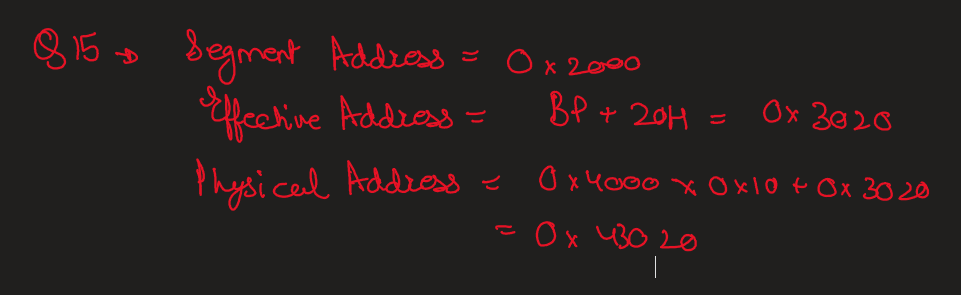 Q15 → Segment Address = 0x2000
Effective Address = BP + 20H = 0x3020
Physical Address = 0x4000 x 0x10 + 0x3020
= 0x43020